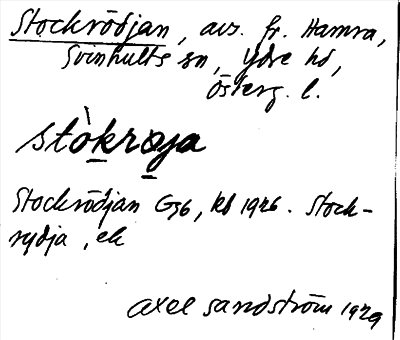 Stockrödjan, avs. fr. Hamra,
Svinhults sn, Ydre hd,
Österg. l.
stòkrøja
Stockrödjan G36, kb 1926. Stock-
rydja, ek
Axel Sandström 1929